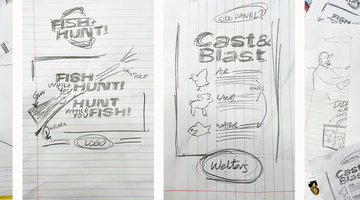 FISH &
HUNT!
FISH
WHILE YOU
HUNT!
HUNT
WHILE YOU
FISH!
LOGO
SIDE PANEL?
Cast &
Blast
AIR
LAND
WATER
Welters
Cast
Blast